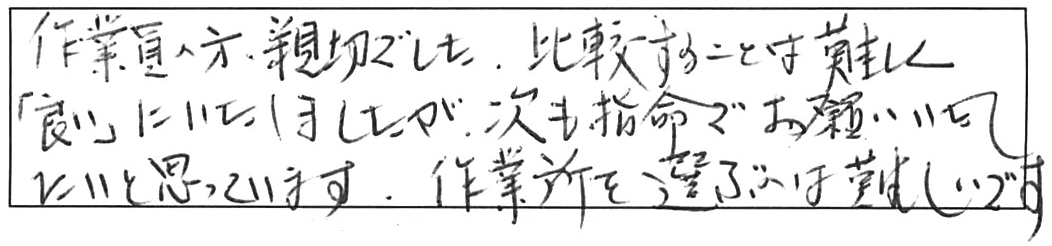 作業員の方、親切でした。比較することは難しく
「良い」にいたしましたが、次も指命でお願いいたし
たいと思っています。作業所を選ぶのは難しいです